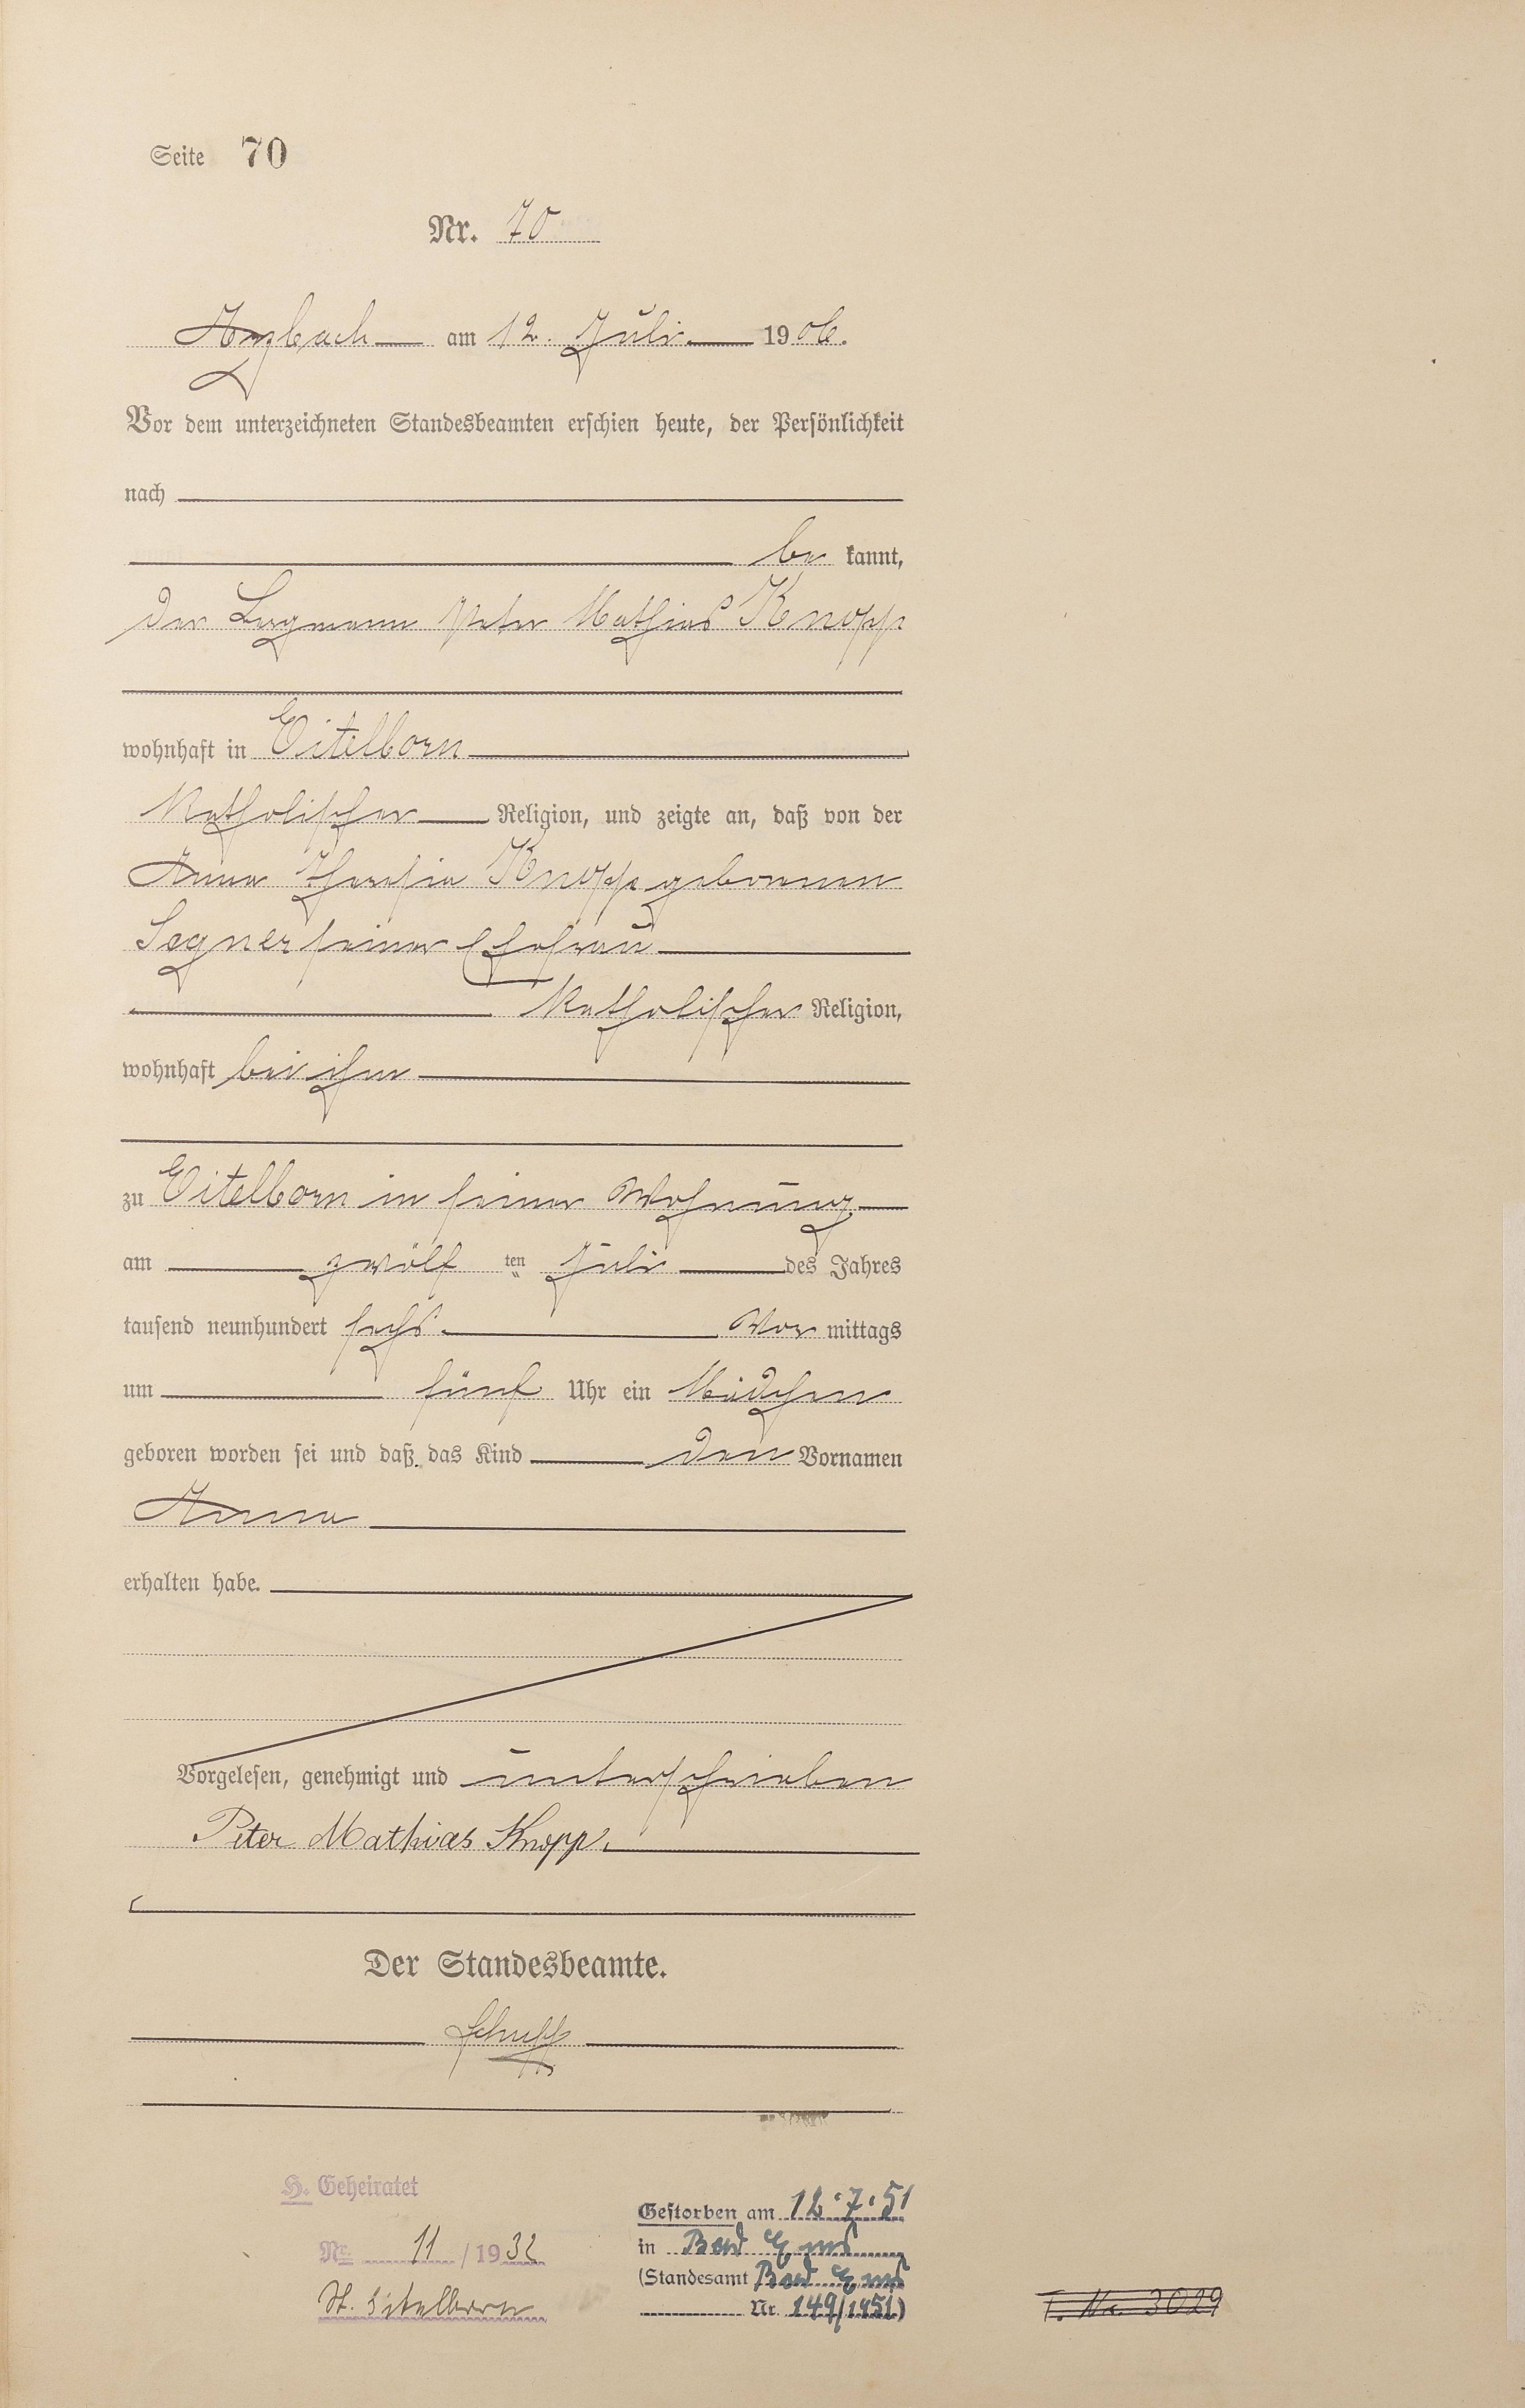 Seite 70
Nr. 70
Arzbach am 12. Juli 1906.
Vor dem unterzeichneten Standesbeamten erschien heute, der Persönlichkeit
nach
be kannt,
der Bergmann Peter Mathias Knopp
wohnhaft in Eitelborn
katholischer Religion, und zeigte an, daß von der
Anna Theresia Knopp geborenen
Segner seiner Ehefrau
katholischer Religion,
wohnhaft bei ihm
zu Eitelborn in seiner Wohnung
am zwölf ten Juli des Jahres
tausend neunhundert sechs Vor mittags
um fünf Uhr ein Mädchen
geboren worden sei und daß das Kind den Vornamen
Anna
erhalten habe.
Vorgelesen, genehmigt und unterschrieben
Peter Mathias Knopp.
Der Standesbeamte.
Schupp
H. Geheiratet
Nr. 11 / 1932
St. Eitelborn
Gestorben am 12.7.51
in Bad Ems
(Standesamt Bad Ems
Nr. 149/1951)
T. Nr. 3029